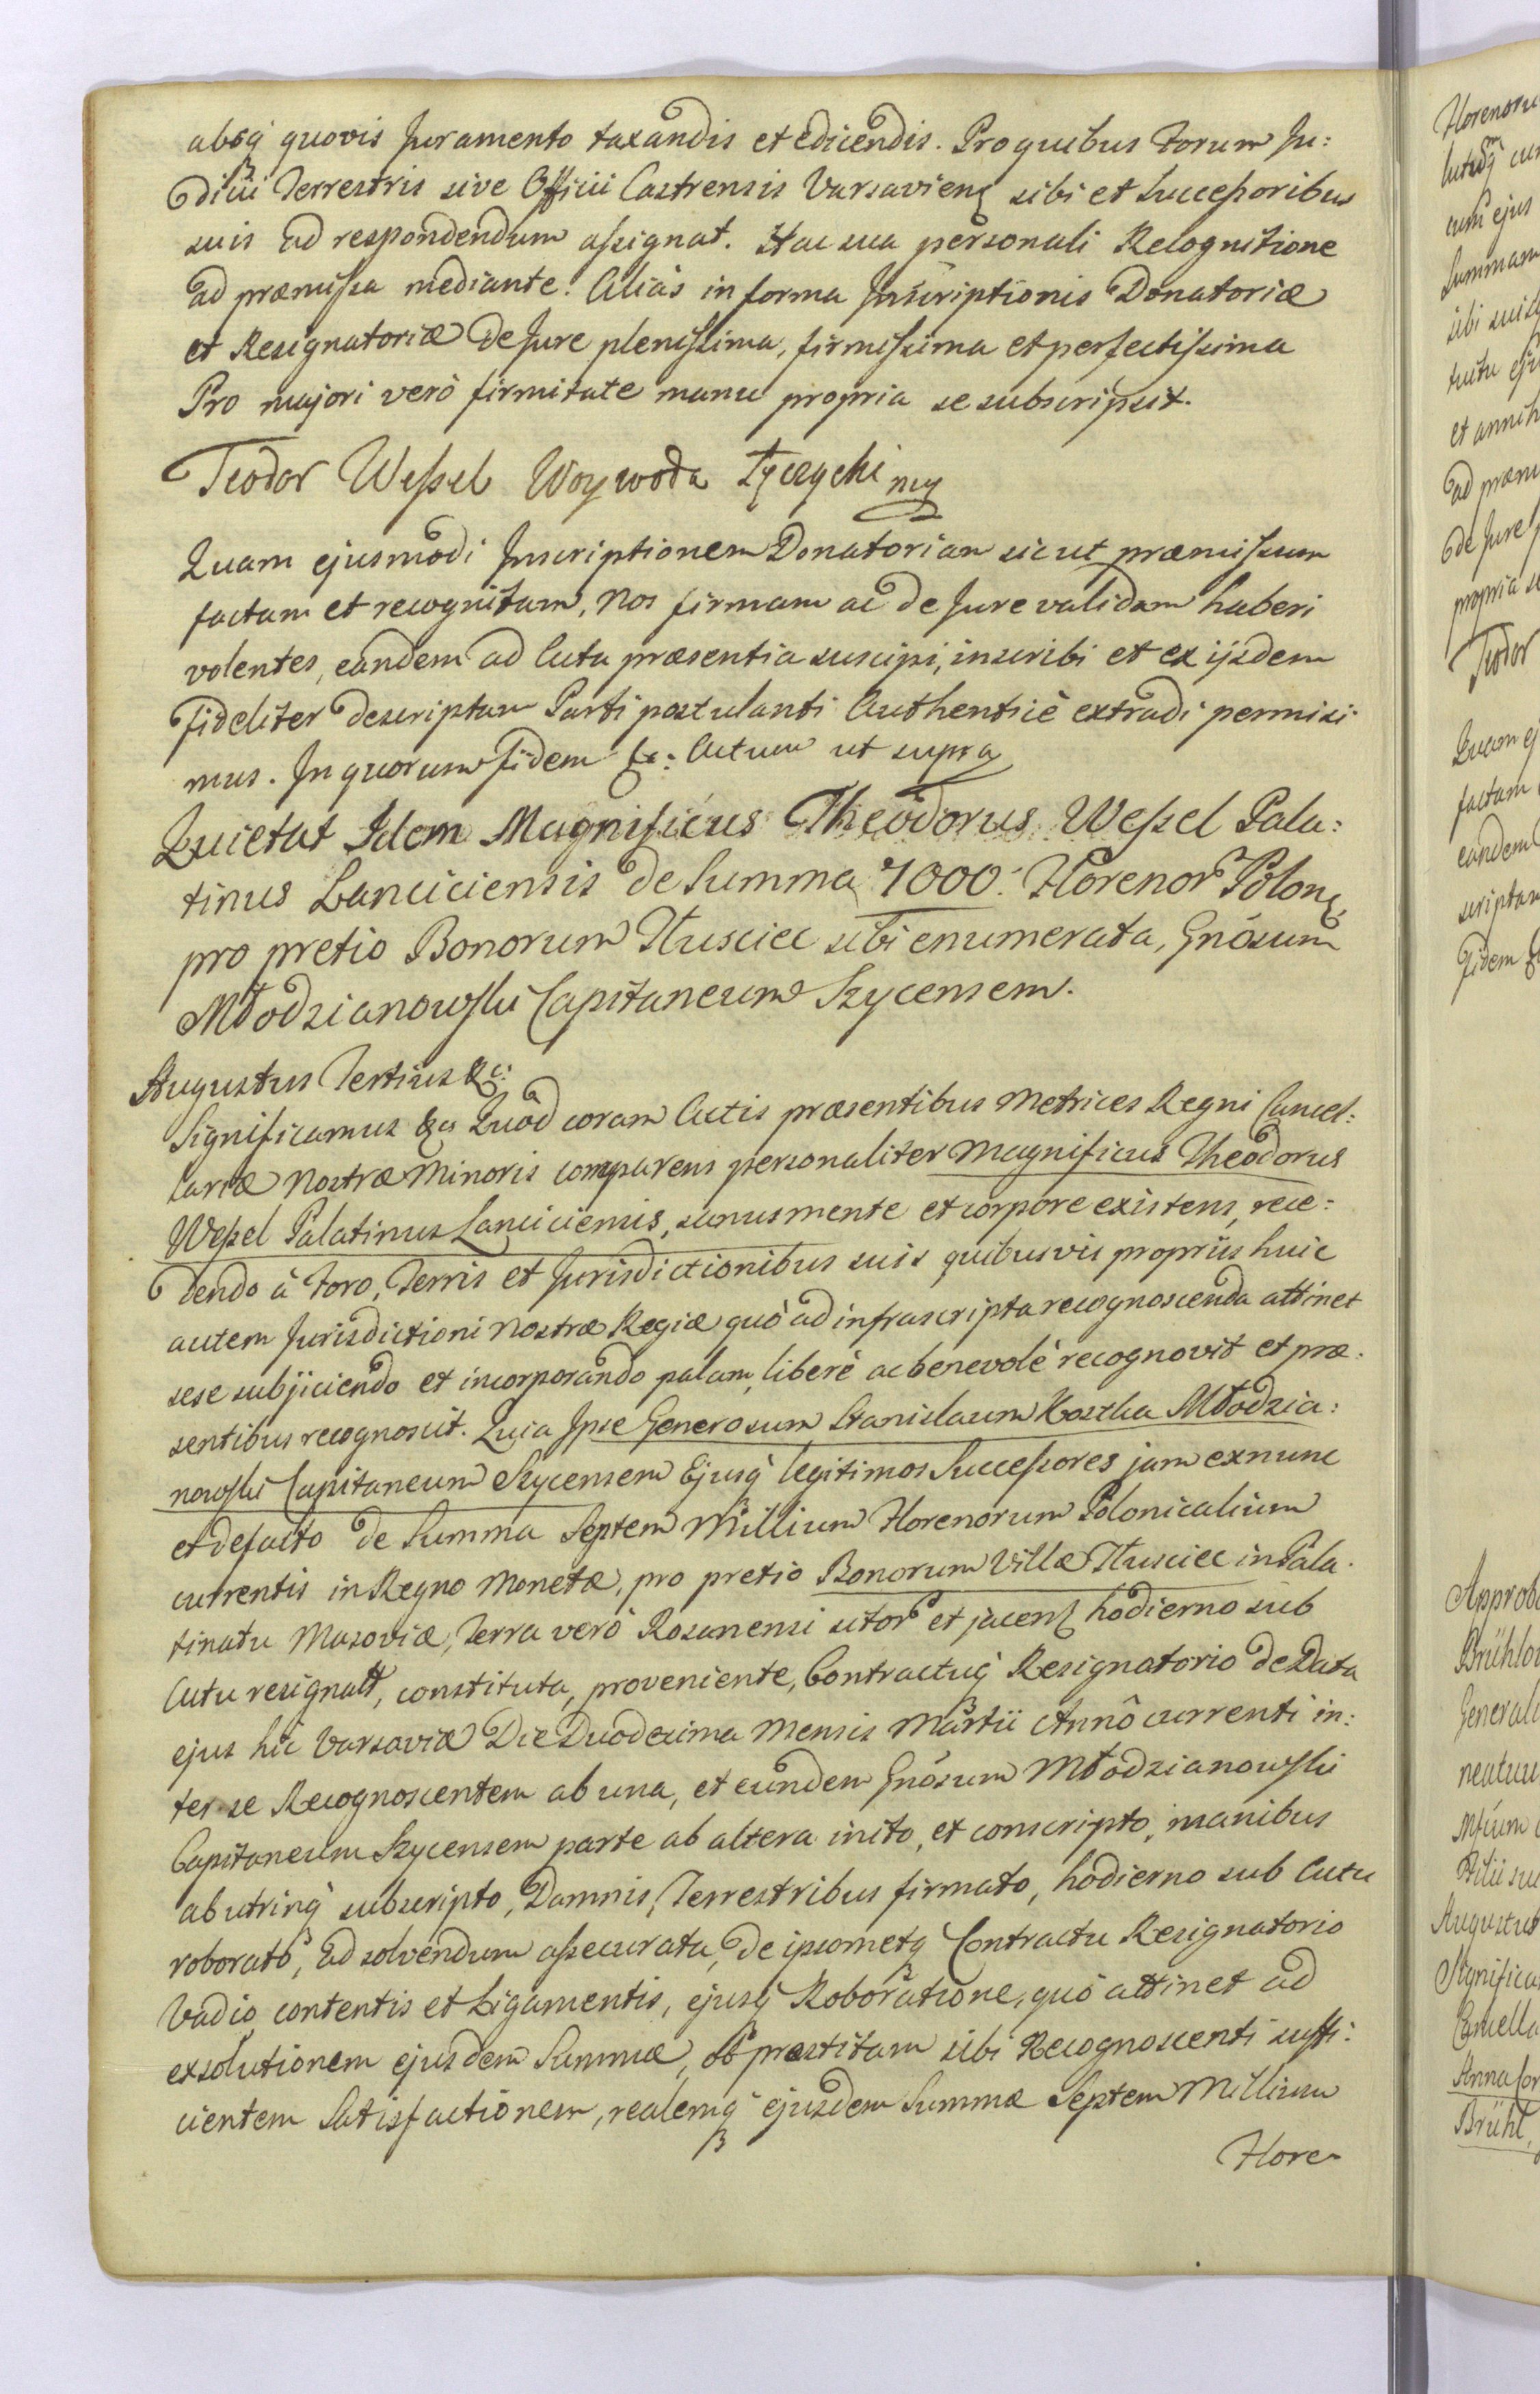 absq quovis Juramento taxandis et edicendis. Pro quibus Forum Ju:
dicii Terrestris sive Officii Castrensis Varsavien sibi et Successoribus
suis ad respondendum assignat. Hac sua personali Recognitione
ad præmissa mediante. Aliàs in forma Inscriptionis Donatoriæ
et Resignatoriæ de Jure plenissima, firmissima et perfectissima
Pro majori verò firmitate manu propria se subscripsit.
Teodor Wessel Woywoda Łęczycki mp
Quam ejusmodi Inscriptionem Donatoriam sicut præmissum
factam et recognitam, Nos firmam ac de Jure validam haberi
volentes, eandem ad Acta præsentia suscipi, inscribi et ex ijsdem
fideliter descriptam Parti postulanti Authenticè extradi permisi
mus. In quorum fidem &c: Actum ut supra
Quietat Idem Magnificus Theodorus Wessel Pala:
tinus Lanciciensis de Summa 7000. Florenor Polon,
pro pretio Bonorum Husciec sibi enumerata, Gnosum
Młodzianowski Capitaneum Szycensem.
Augustus Tertius &c:
Significamus &c Quod coram Actis præsentibus Metrices Regni Cancel:
lariæ Nostræ Minoris comparens personaliter Magnificus Theodorus
Wessel Palatinus Lanciciensis, sanus mente et corpore existens, rece:
dendo à Foro, Terris et Jurisdictionibus suis quibusvis propriis huic
autem Jurisdictioni Nostræ Regiæ quò ad infrascripta recognoscenda attinet
sese subjiciendo et incorporando palam, liberè ac benevolè recognovit et præ:
sentibus recognoscit. Quia Ipse Generosum Stanislaum Kostka Młodzia:
nowski Capitaneum Szycensem Ejusq legitimos Successores jam exnunc
et defacto de Summa Septem Millium Florenorum Polonicalium
currentis in Regno Monetæ, pro pretio Bonorum Villæ Husciec in Pala
tinatu Masoviæ, Terra verò Rosanensi sitor et jacen hodierno sub
Actu resignatt, constituta, proveniente, Contractuq Resignatorio de Data
ejus hic Varsaviæ Die Duodecima Mensis Martii Annô currenti in:
ter se Recognoscentem ab una, et eundem Gnosum Młodzianowski
Capitaneum Szycensem parte ab altera inito, et conscripto, manibus
ab utrinq subscripto, Damnis, Terrestribus firmato, hodierno sub Actu
roborato, ad solvendum assecurata, de ipsometq Contractu Resignatorio
Vadio contentis et Ligamentis, ejusq Roboratione, quò attinet ad
exsolutionem ejusdem Summæ, ob præstitam sibi Recognoscenti suffi:
cientem Satisfactionem, realemq ejusdem Summæ Septem Millium
Flore